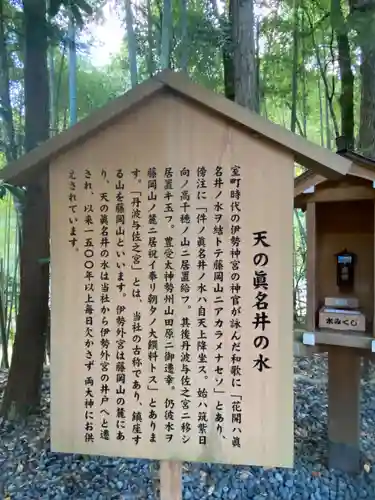 天の眞名井の水
室町時代の伊勢神宮の神官が詠んだ和歌に「花開ハ眞
名井ノ水ヲ結トテ藤岡山ニアカラメナセソ」とあり
傍注に「件ノ眞名井ノ水ハ自天上降坐ス。始ハ筑紫日
向ノ高千穂ノ山ニ居置給フ。其後丹波与佐之宮ニ移シ
居置キ玉フ。豊受太神勢州山田原ニ御遷幸。仍彼水ヲ
藤岡山ノ麓ニ居祝イ奉リ朝タノ大饌料トス」とありま
す。「丹波与佐之宮」とは、当社の古称であり、鎮座す
る山を藤岡山といいます。伊勢外宮は藤岡山の麓にあ
り、天の眞名井の水は当社から伊勢外宮の井戸へと遷
され、以来一五〇〇年以上毎日欠かさず両大神にお供
えされています。
水みくじ